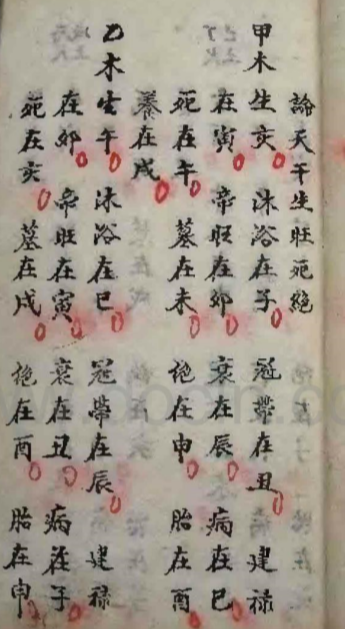 論天干生旺死絕
甲木生亥 沐浴在子 冠帶在丑 建禄
在寅 帝旺在卯 衰在辰 病在巳
死在午 墓在未 绝在申 胎在酉
養在戌
乙木生午 沐浴在巳 冠帶在辰 建禄
在卯 帝旺在寅 衰在丑 病在子
死在亥 墓在戌 绝在酉 胎在申